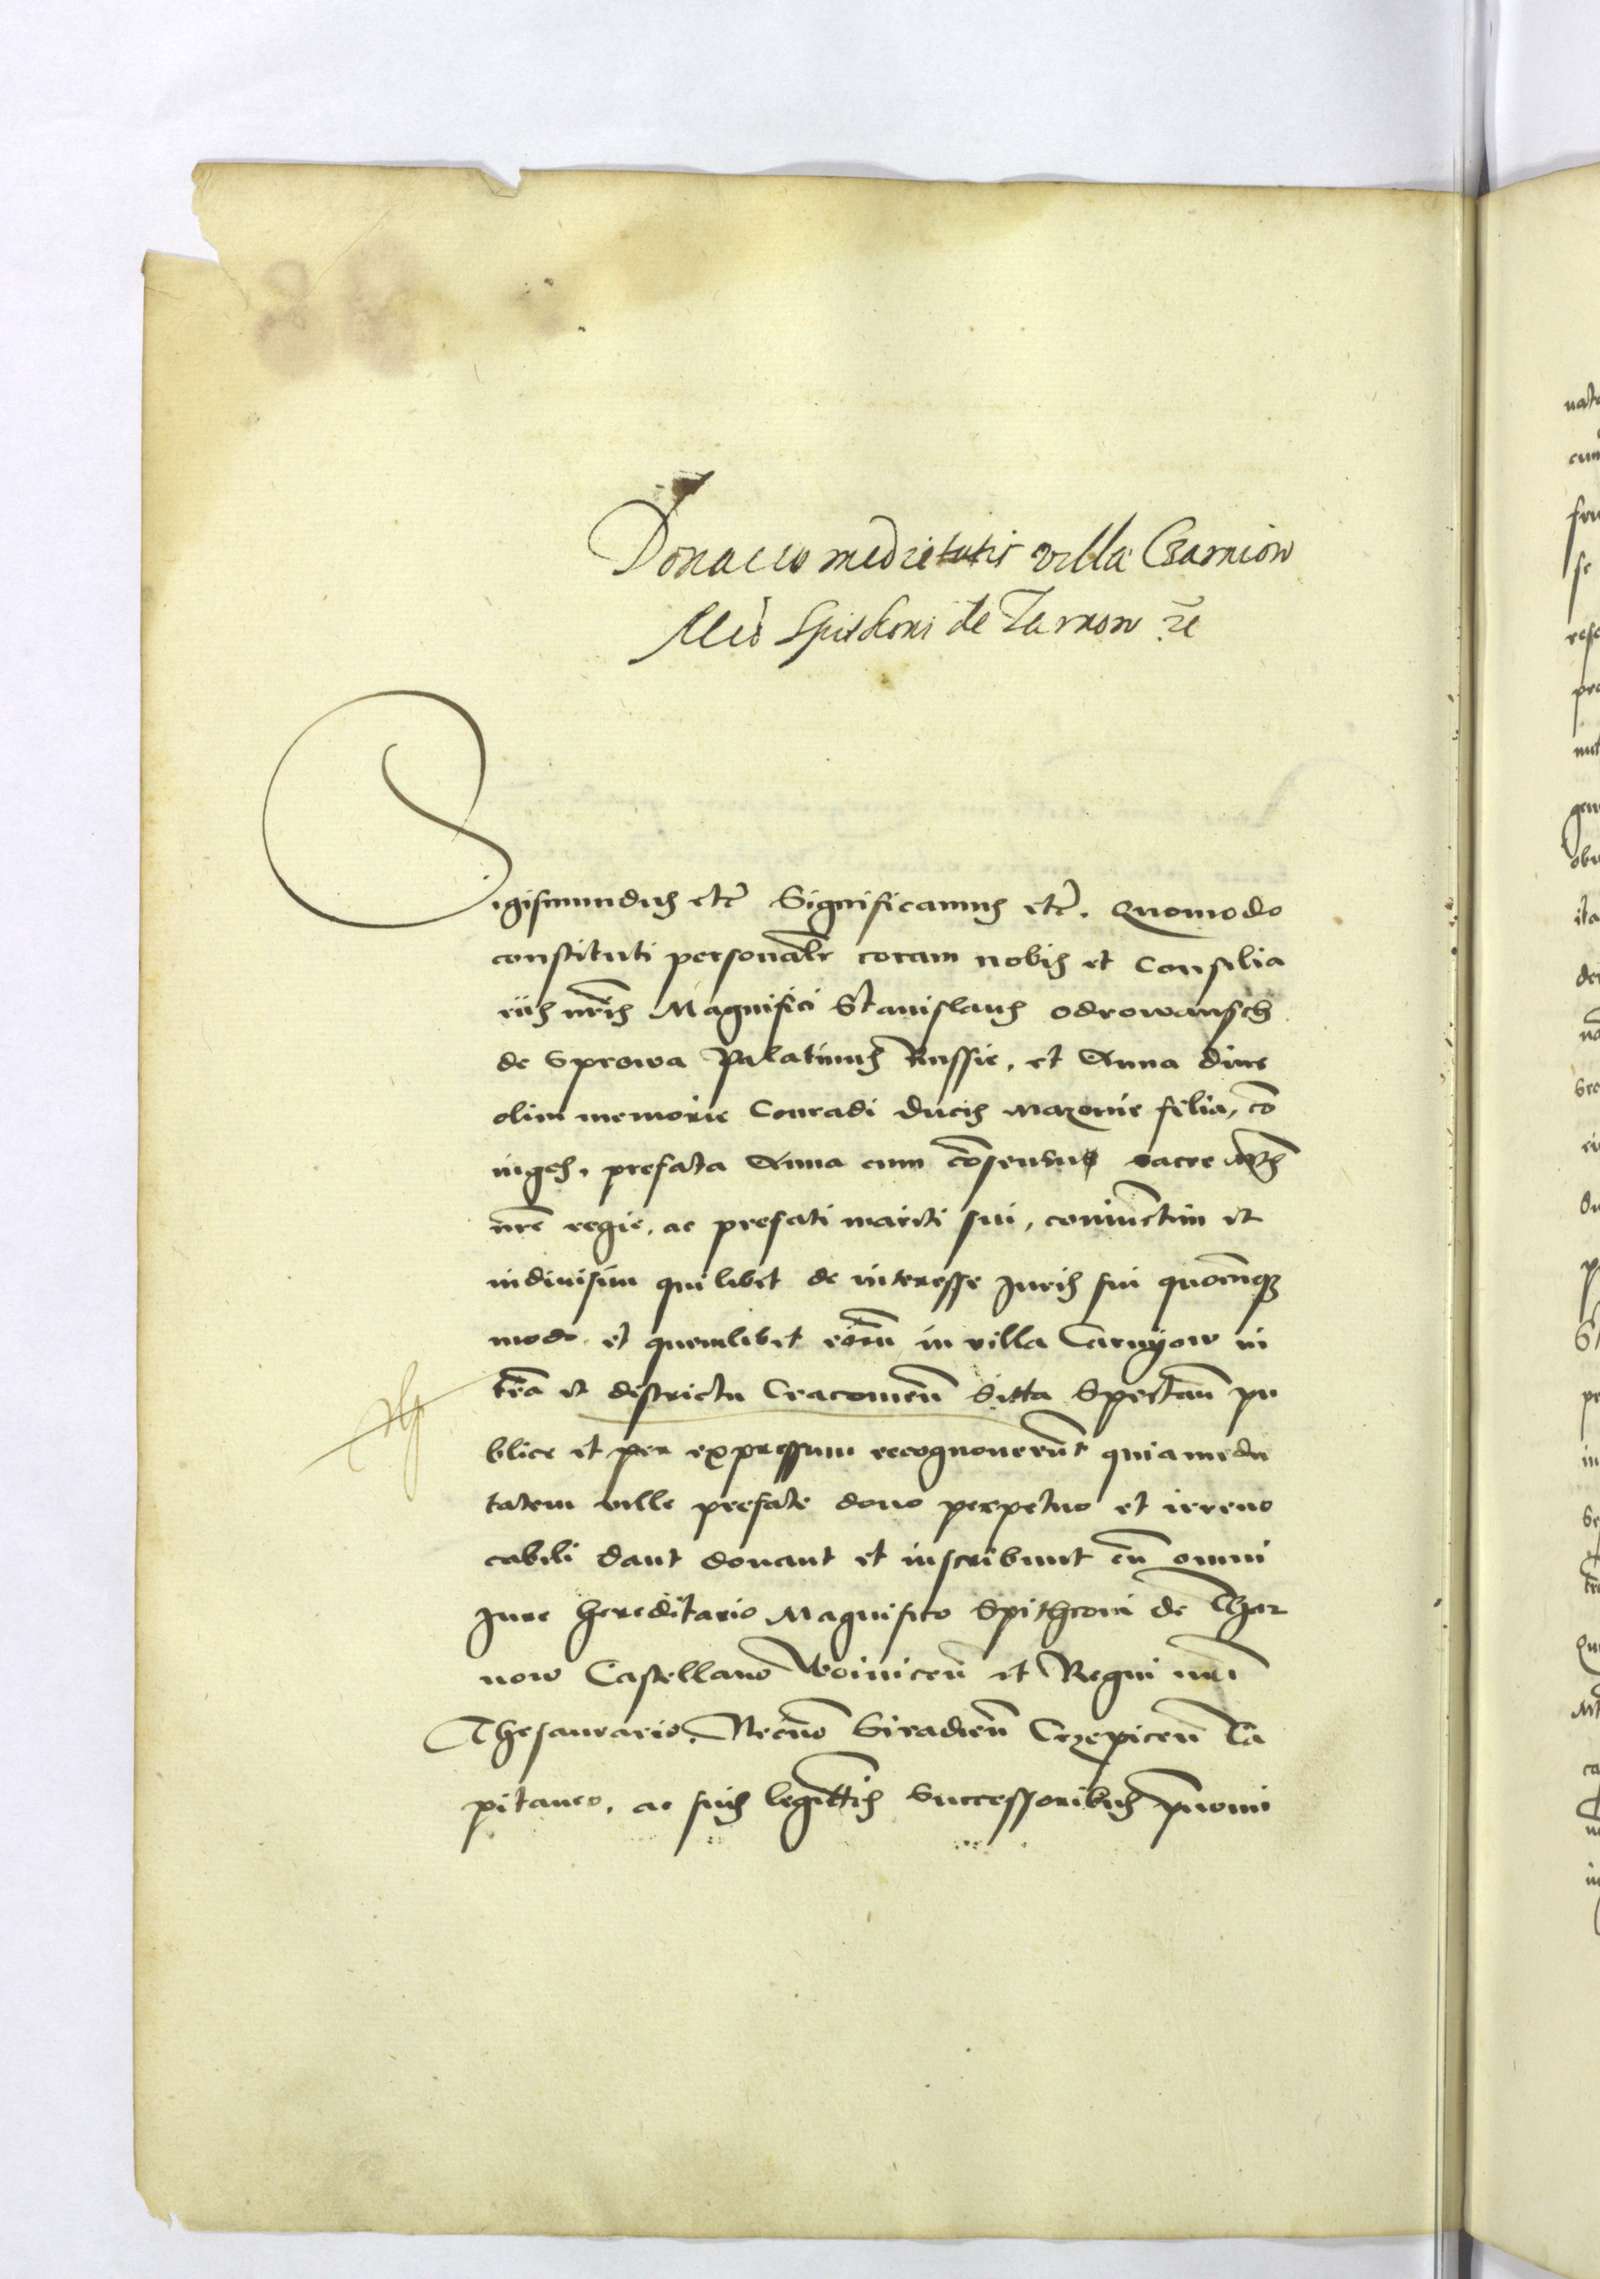 Donacio medietatis villae Czarniow
Mco Spitkoni de Tarnow etc
Sigismundus etc Significamus etc. Quomodo
constituti personalr coram nobis et Consilia
riis nris Magnifici Stanislaus odrowansch
de Sprowa Palatinus Russie, et Anna dive
olim memorie Conradi ducis Mazovie filia, co
iuges, prefata Anna cum consensu sacre Mtis
nre regie, ac prefati mariti sui, coniunctim et
indivisim quilibet de interesse Juris sui quocunqz
modo et quemlibet eorum in villa Carnyow in
tra et districtu Cracovien sitta Spectan pu
blice et per expressum recognoverunt quia medie
tatem ville prefate dono perpetuo et irrevo
cabili dant donant et inscribunt cu omni
Jure hereditario Magnifico Spithconi de Thar
now Castellano Woinicen et Regni nri
Thesaurario, Necno Siradien Crzepicen Ca
pitaneo, ac suis legittis Successoribus